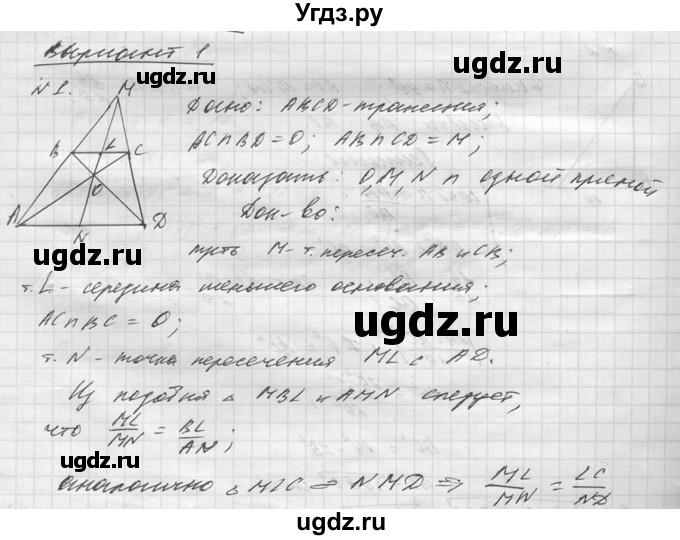 Угдз.ру
Вариант 1
N 1.
M
B L C
O
A N D
Дано: ABCD-трапеция;
AC∩BD=O; AB∩CD=M;
Доказать: O,M,N ∩ одной прямой
Док-во:
пусть M-т. пересеч. AB и CB;
т. L - середина меньшего основания;
AC∩BC=O;
т. N - точка пересечения ML с AD.
Из подобия △ MBL и AMN следует,
что ML/MN = BL/AN;
аналогично △ MLC и NMD ⇒ ML/MN = LC/ND
ugdz.ru
ugdz.ru
ugdz.ru
ugdz.ru
ugdz.ru
ugdz.ru
ugdz.ru
ugdz.ru
Угдз.ру